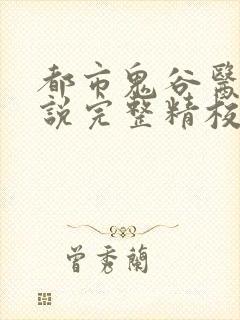 都市鬼谷醫
說完整精校
曾秀蘭